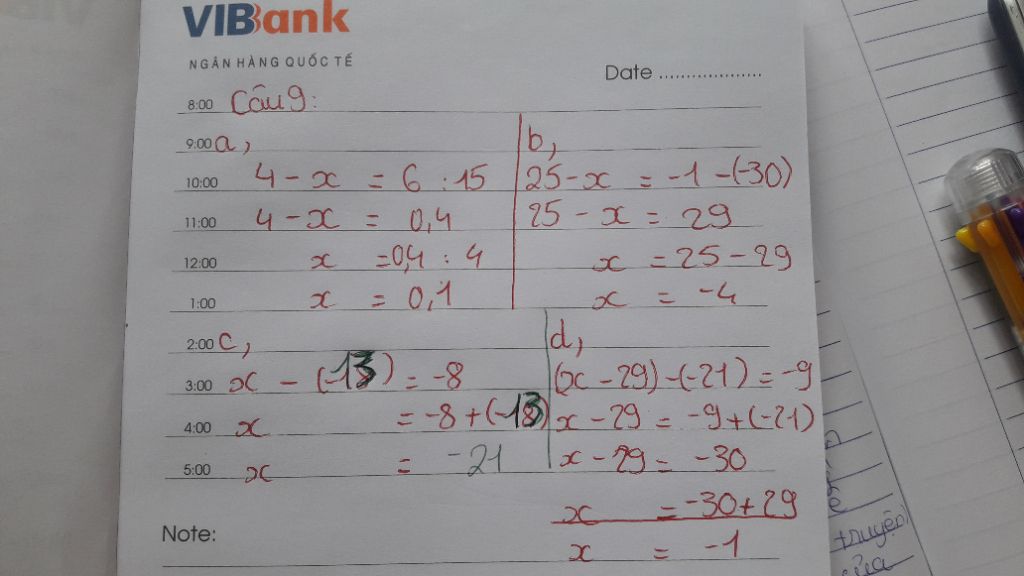 VIBank
NGÂN HÀNG QUỐC TẾ
Date ....................
8:00 Câu 9:
9:00 a,
10:00 4 - x = 6 : 15
11:00 4 - x = 0,4
12:00 x = 0,4 : 4
1:00 x = 0,1
b,
25 - x = -1 - (-30)
25 - x = 29
x = 25 - 29
x = -4
2:00 c,
3:00 x - (-13) = -8
4:00 x = -8 + (-13)
5:00 x = -21
d,
(x - 29) - (-21) = -9
x - 29 = -9 + (-21)
x - 29 = -30
x = -30 + 29
x = -1
Note:
truyện
của